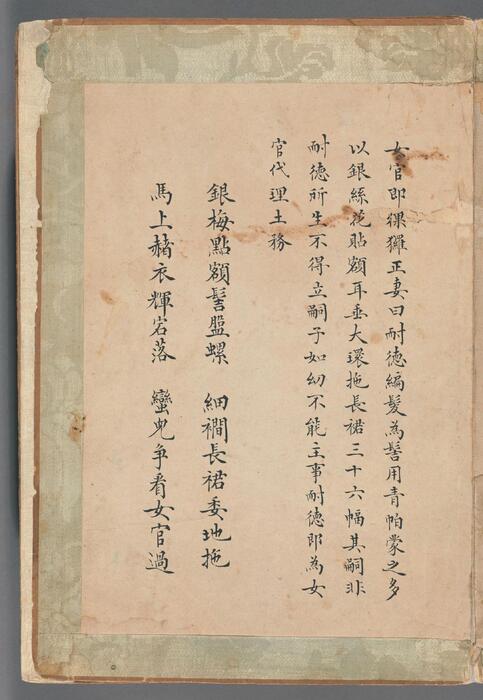 女官即猓玀正妻曰耐德編髮為髻用青帕蒙之多
以銀絲花貼額耳垂大環拖長裙三十六幅其嗣非
耐德所生不得立嗣子如幼不能主事耐德即為女
官代理土務
銀梅點額髻盤螺　細襉長裙委地拖
馬上赭衣輝宕落　蠻兒爭看女官過